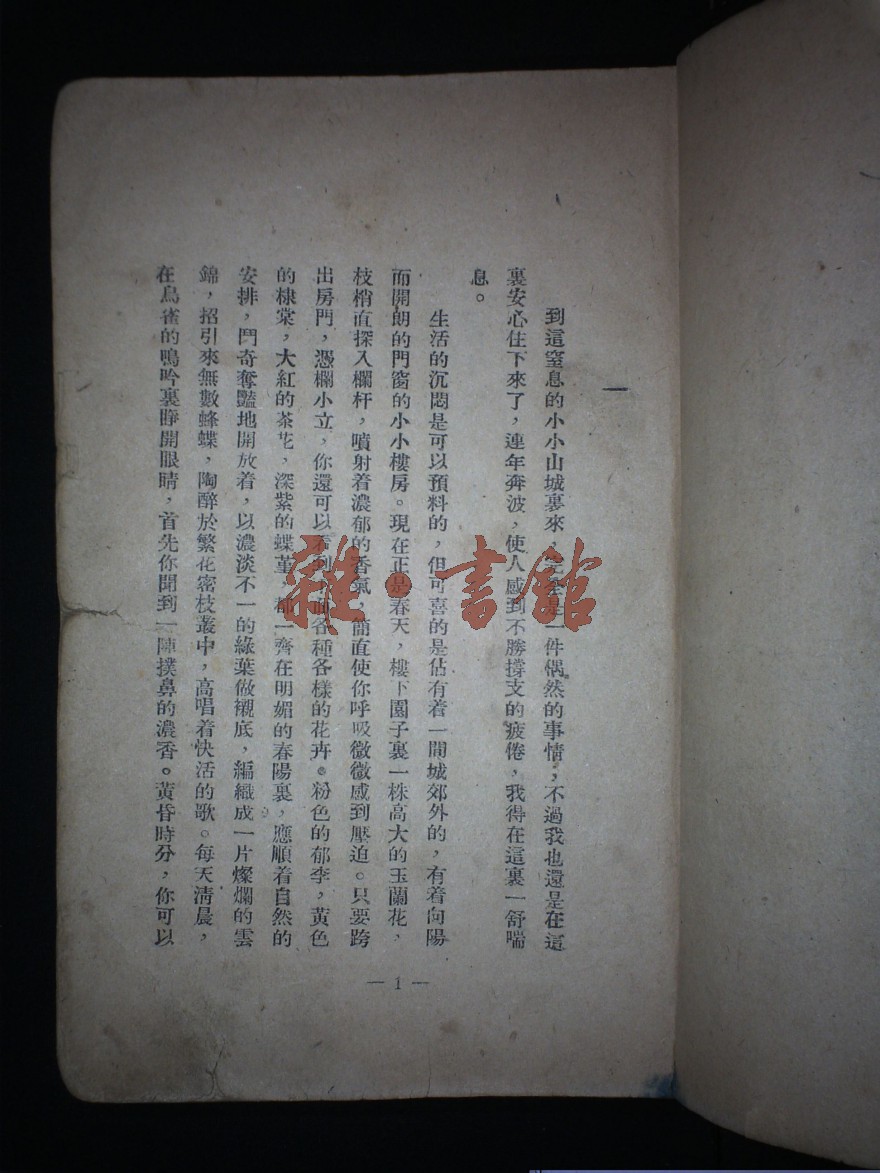 一
到這窒息的小小山城裏來，是一件偶然的事情，不過我也還是在這
裏安心住下來了，連年奔波，使人感到不勝撐支的疲倦，我得在這裏一舒喘
息。
生活的沉悶是可以預料的，但可喜的是佔有着一間城郊外的，有着向陽
而開朗的門窗的小小樓房。現在正是春天，樓下園子裏一株高大的玉蘭花，
枝梢直探入欄杆，噴射着濃郁的香氣，簡直使你呼吸微微感到壓迫。只要跨
出房門，憑欄小立，你還可以看到面各種各樣的花卉。粉色的郁李，黃色
的棣棠，大紅的茶花，深紫的蝶堇，都一齊在明媚的春陽裏，應順着自然的
安排，鬥奇奪豔地開放着，以濃淡不一的綠葉做襯底，編織成一片燦爛的雲
錦，招引來無數蜂蝶，陶醉於繁花密枝叢中，高唱着快活的歌。每天清晨，
在鳥雀的鳴吟裏睜開眼睛，首先你聞到一陣撲鼻的濃香。黃昏時分，你可以
— 1 —
雜·書館